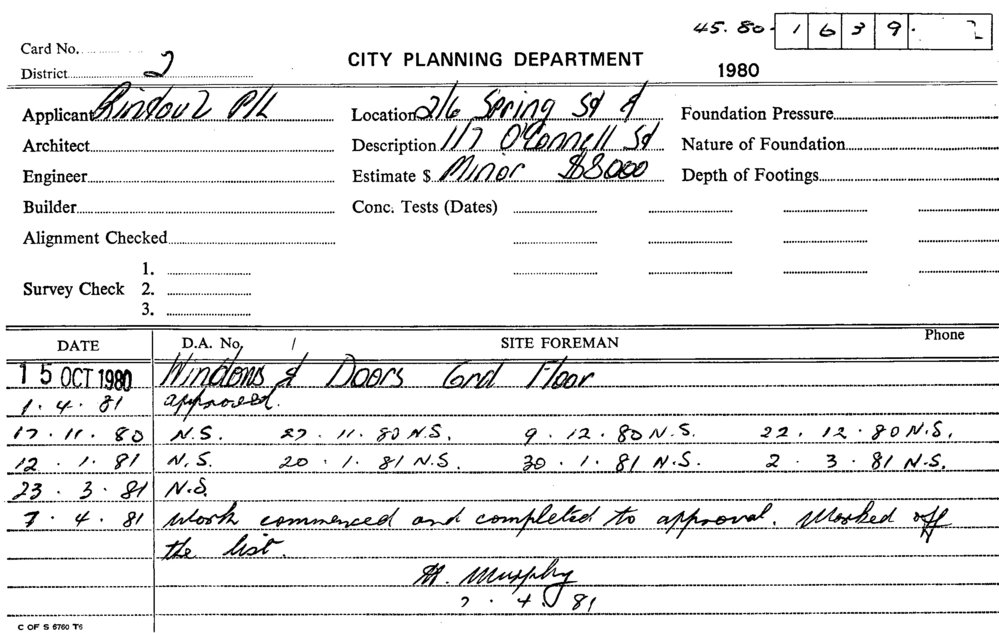 45.80. 1 6 3 9.
Card No.
CITY PLANNING DEPARTMENT
District 2
1980
Applicant P/L
Location 2/6 Spring St &
Foundation Pressure
Architect
Description 1/7 O'Connell St
Nature of Foundation
Engineer
Estimate $ Minor $8000
Depth of Footings
Builder
Conc. Tests (Dates)
Alignment Checked
1.
Survey Check 2.
3.
DATE D.A. No. / SITE FOREMAN Phone
15 OCT 1980 Windows & Doors Grnd Floor
1.4.81 approved.
17.11.80 N.S. 27.11.80 N.S. 9.12.80 N.S. 22.12.80 N.S.
12.1.81 N.S. 20.1.81 N.S. 30.1.81 N.S. 2.3.81 N.S.
23.3.81 N.S.
7.4.81 Work commenced and completed to approval. Marked off
the list.
Murphy
7.4.81
C OF S 6760 T6